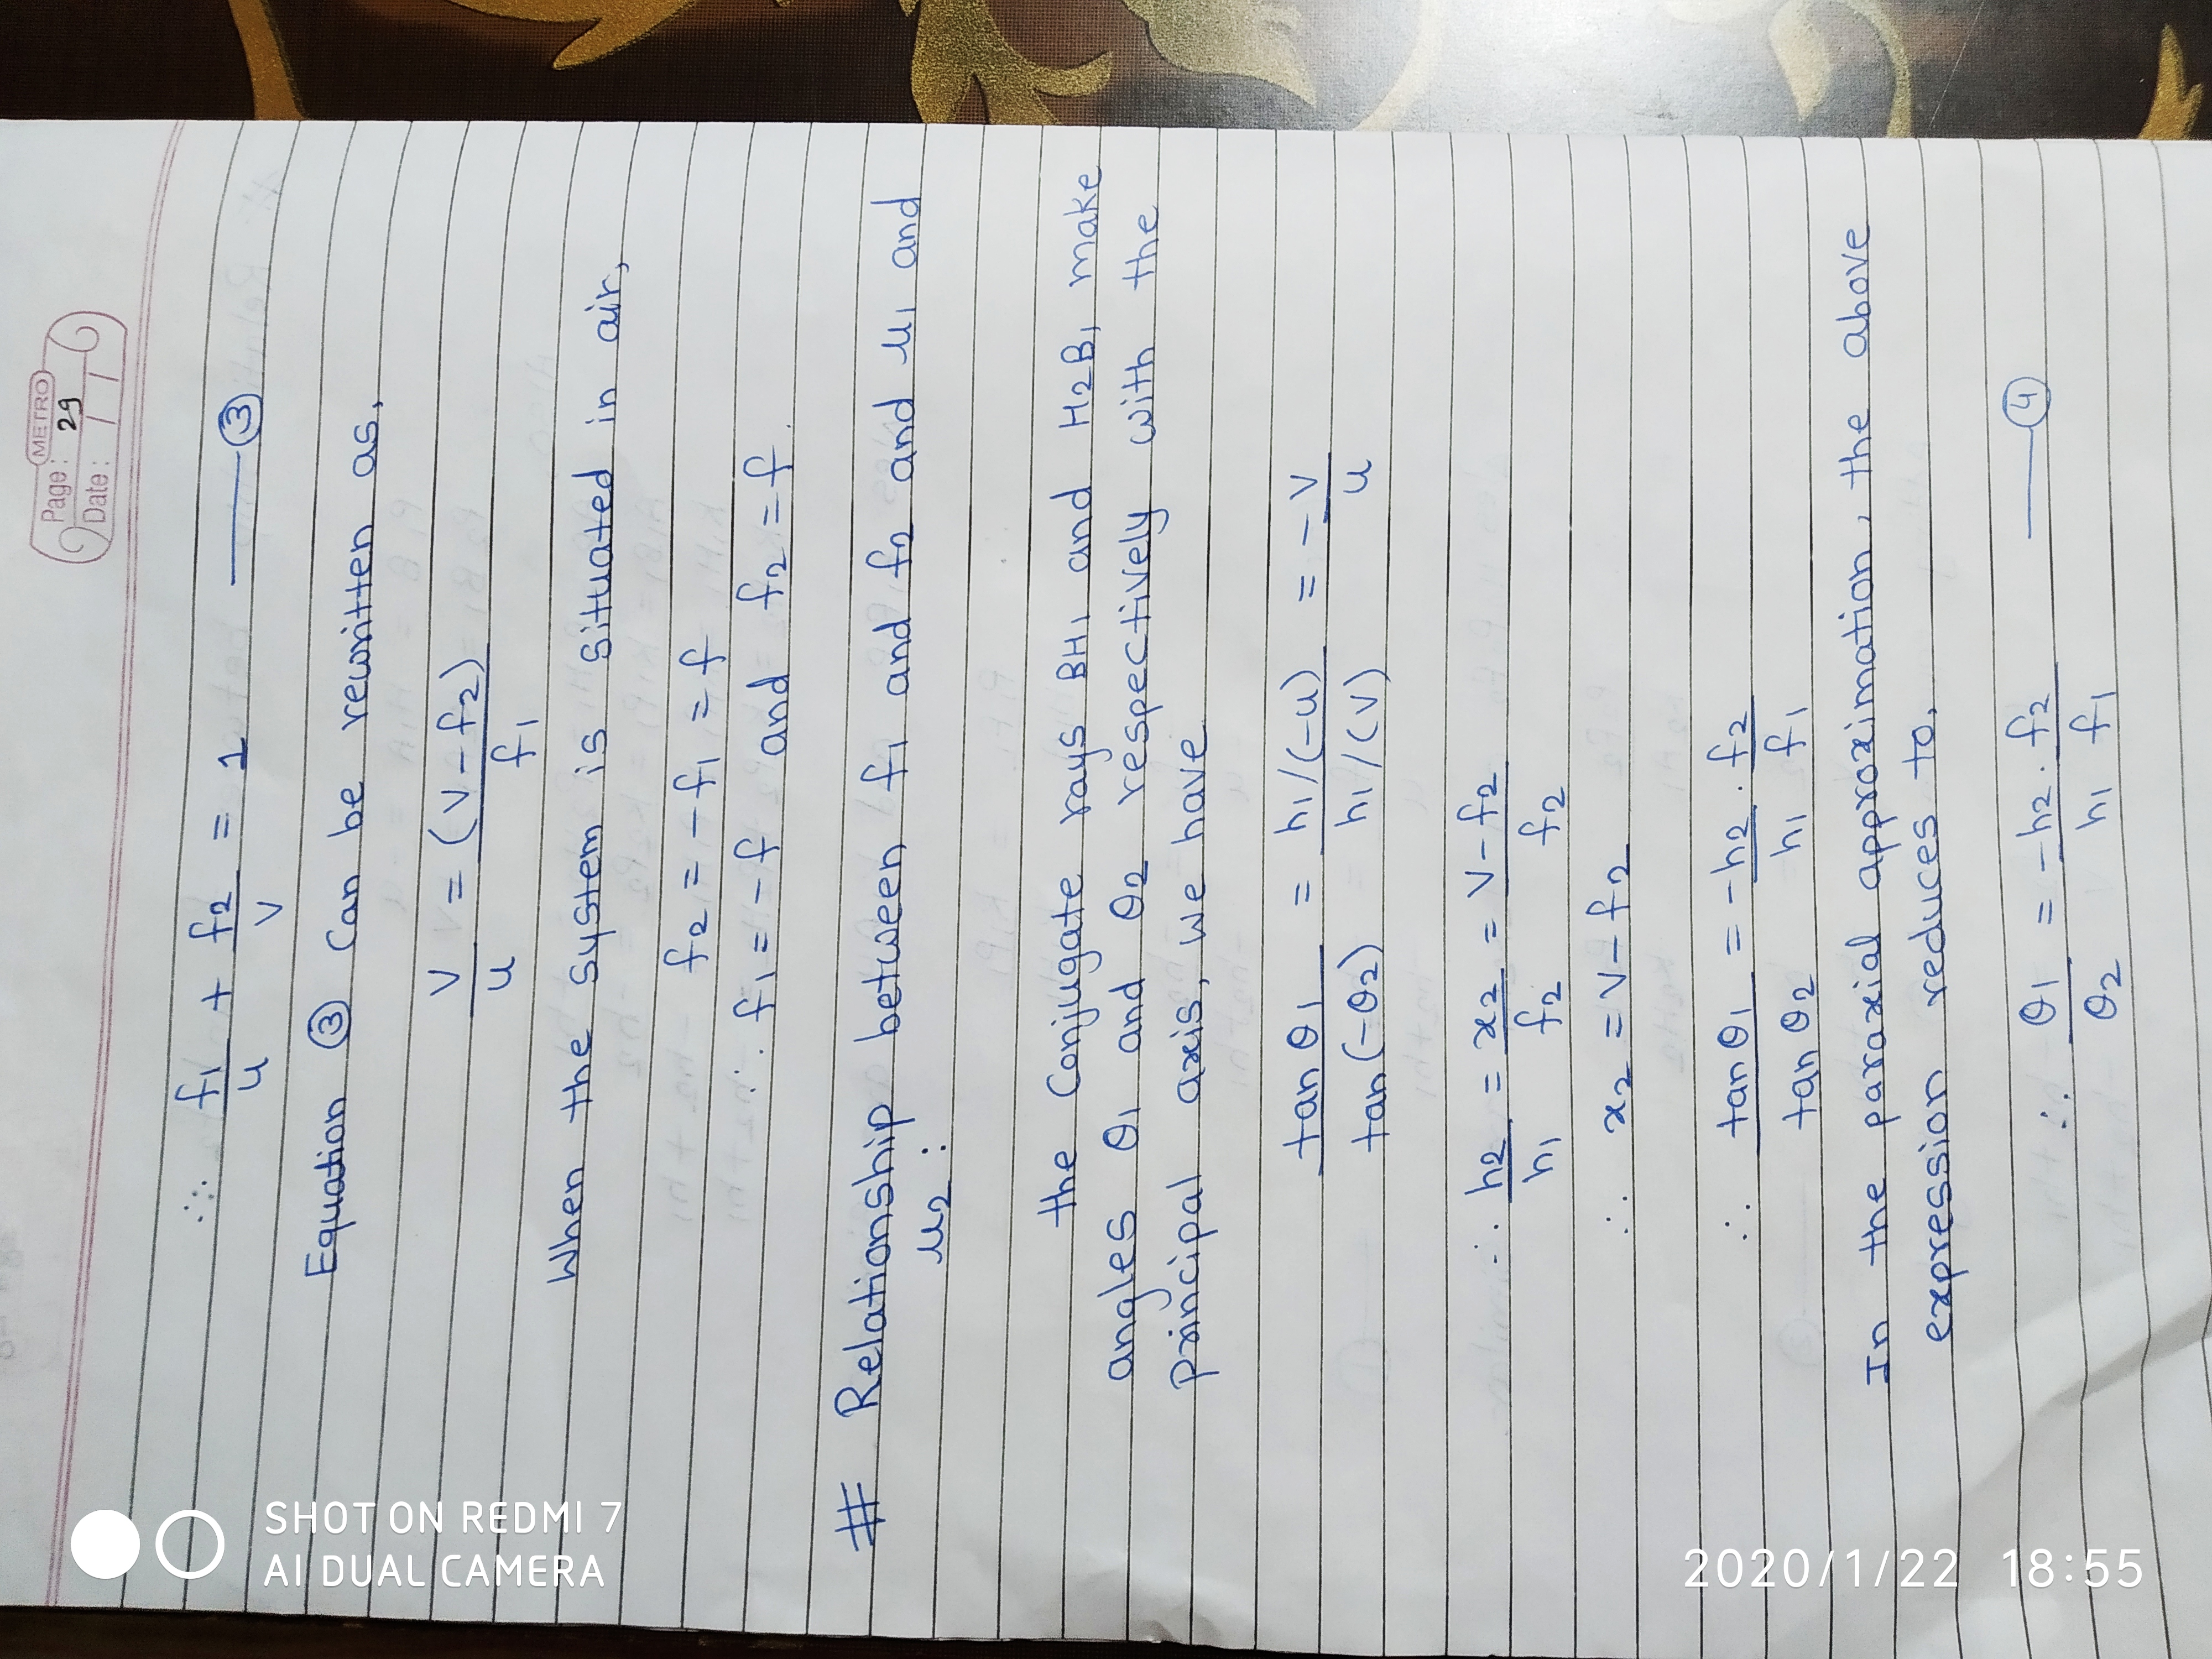 METRO
Page: 29
Date: / /
∴ f1/u + f2/v = 1 —— ③
Equation ③ can be rewritten as,
v/u = (v-f2)/f1
When the system is situated in air,
f2 = -f1 = f
∴ f1 = -f and f2 = f.
# Relationship between f1 and f2 and μ1 and
μ2 :
the conjugate rays BH1 and H2B1 make
angles θ1 and θ2 respectively with the
principal axis, we have
tanθ1/tan(-θ2) = h1/(-u)/h1/(v) = -v/u
∴ h2/h1 = x2/f2 = v-f2/f2
∴ x2 = v-f2
∴ tanθ1/tanθ2 = -h2/h1 . f2/f1
In the paraxial approximation, the above
expression reduces to,
∴ θ1/θ2 = -h2/h1 . f2/f1 —— ④
SHOT ON REDMI 7
AI DUAL CAMERA
2020/1/22 18:55